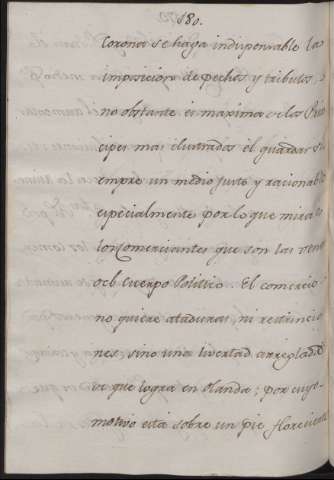 180.
Corona se haga indispensable la
imposicion de pechos y tributos,
no obstante es maxima de los Prin
cipes mas ilustrados el guardar si
empre un medio justo y racional
especialmente por lo que mira a
los Comerciantes que son las venas
del Cuerpo Politico. El comercio
no quiere ataduras, ni restriccio
nes, sino una livertad arreglada
la que logra en Olanda; por cuyo
motivo està sobre un pie florecient